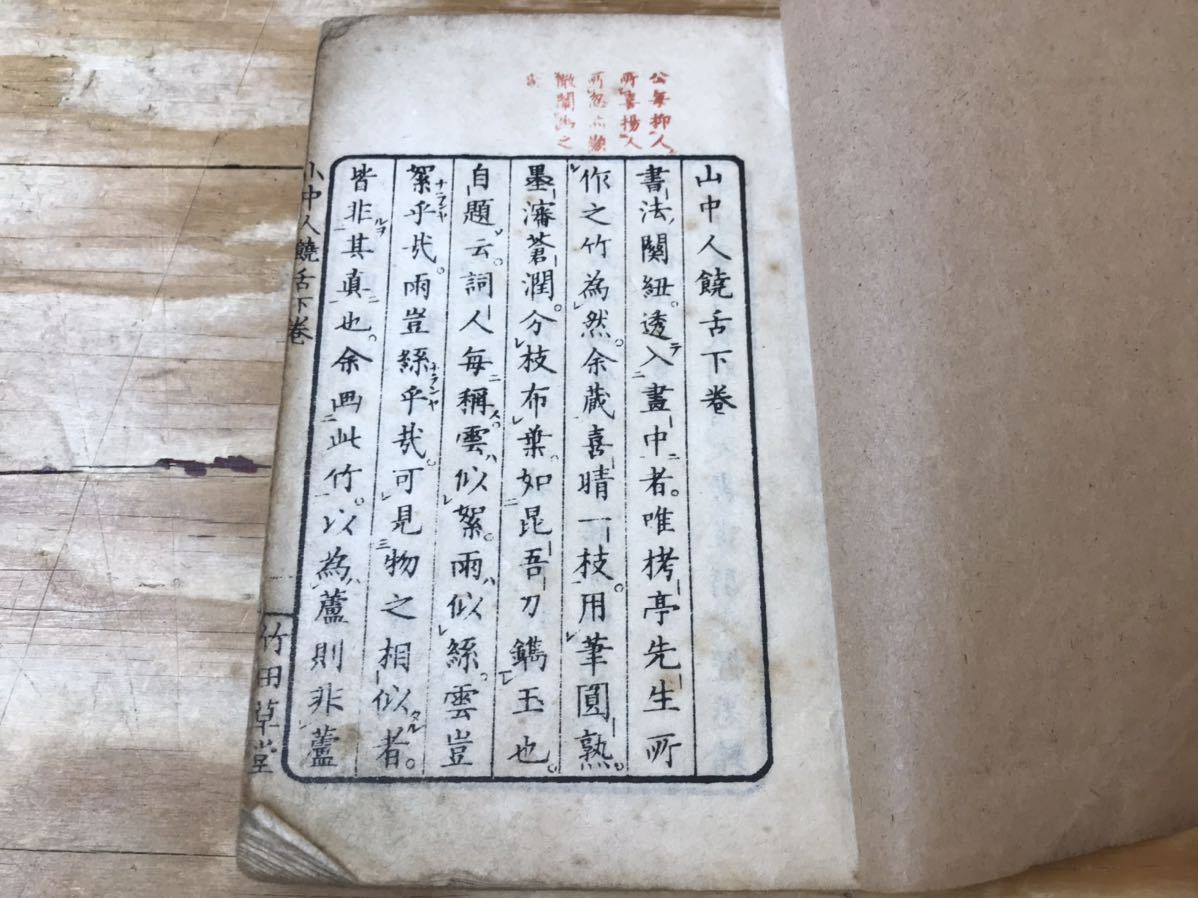 公每抑人
所喜揚人
所忽亦
闡幽之
山中人饒舌下卷
書法關紐。透入畫中者。唯栲亭先生所
作之竹為然。余蔵喜晴一枝。用筆圓熟。
墨瀋蒼潤。分枝布葉。如昆吾刀鐫玉也。
自題云。詞人每稱雲似絮。雨似絲。雲豈
絮乎哉。雨豈絲乎哉。可見物之相似者。
皆非其真也。余画此竹。以為蘆則非蘆
山中人饒舌下卷
竹田草堂